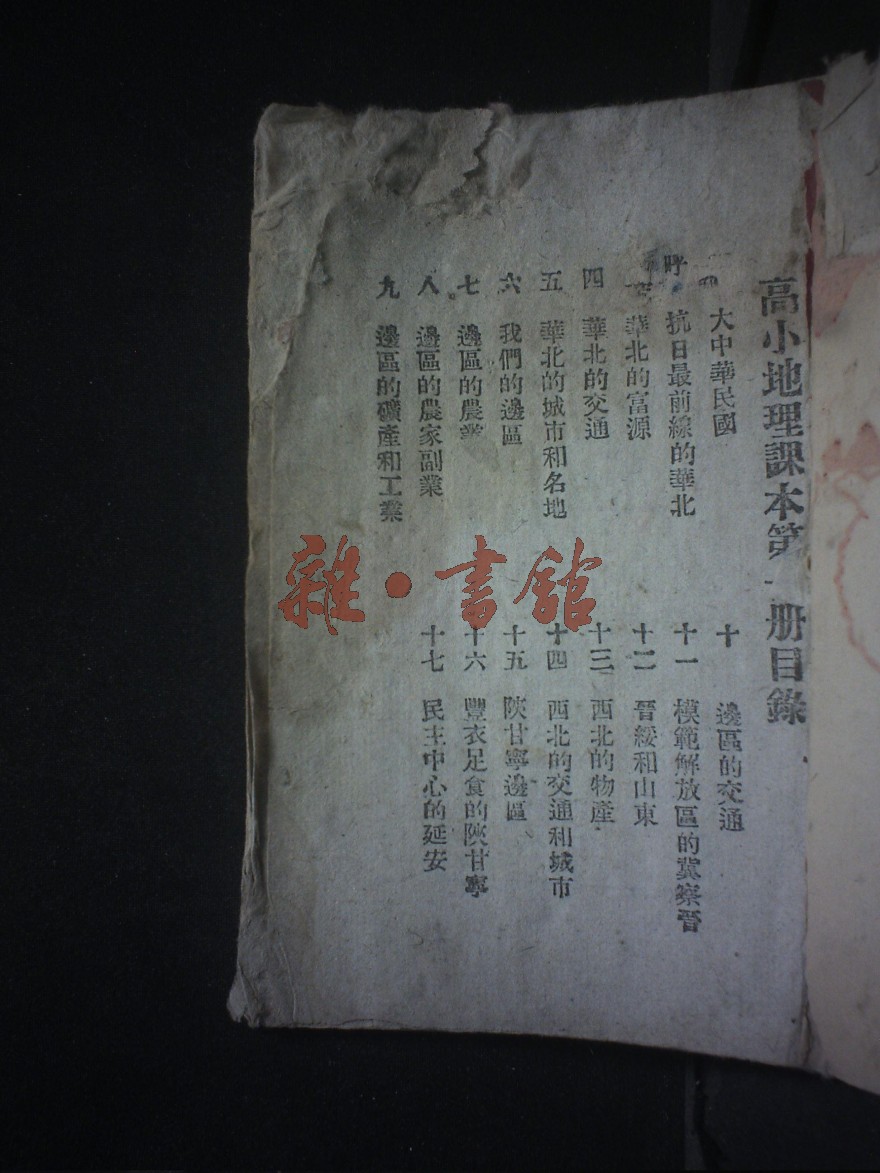 高小地理課本第一册目錄
一 大中華民國
抗日最前線的華北
三 華北的富源
四 華北的交通
五 華北的城市和名地
六 我們的邊區
七 邊區的農業
八 邊區的農家副業
九 邊區的礦產和工業
十 邊區的交通
十一 模範解放區的冀察晉
十二 晉綏和山東
十三 西北的物產
十四 西北的交通和城市
十五 陝甘寧邊區
十六 豐衣足食的陝甘寧
十七 民主中心的延安
雜·書館